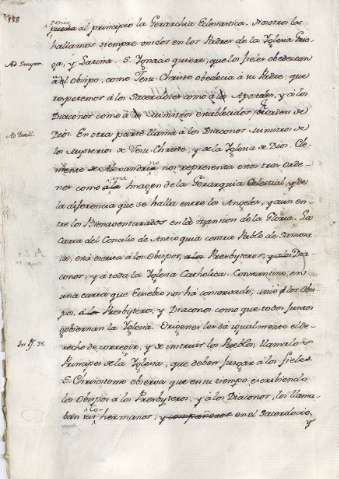 al principio la Gerarchia Eclesiastica. Nosotros los
hallamos siempre unidos en los Padres de la Yglesia Grie-
ga, y Latina. S. Ygnacio quiere, que los fieles obedezcan
al Obispo, como Jesu-Christo obedecia a su Padre, que
respeten a los Sacerdotes como a los Apostoles, y á los
Diaconos como á Ministros establecidos de
Dios. En otra parte llama á los Diaconos Ministros de
los Mysterios de Jesu-Christo, y de la Yglesia de Dios. Cle-
mente de Alexandria nos representa estos tres orde-
nes como una Imagen de la Gerarquia Celestial, y de
la diferencia que se halla entre los Angeles, y aun en-
tre los Bienaventurados en la de la Gloria. La
Carta del Concilio de Antioquia contra Pablo de Samosa-
ta, está escrita á los Obispos, a los Presbyteros, y a los Dia-
conos, y á toda la Yglesia Catholica. Constantino, en
una carta que Eusebio nos há conservado, á los Obis-
pos, á los Presbyteros, y Diaconos como que todos juntos
gobiernan la Yglesia. Origenes les da igualmente el de-
recho de corregir, y de instruir los Pueblos, llamalos
Principes de la Yglesia, que deben juzgar á los fieles.
S. Chrisostomo observa que en su tiempo escribiendo
los Obispos a los Presbyteros, y á los Diaconos, los llama-
ban hermanos, y compañeros en el Sacerdocio,
y